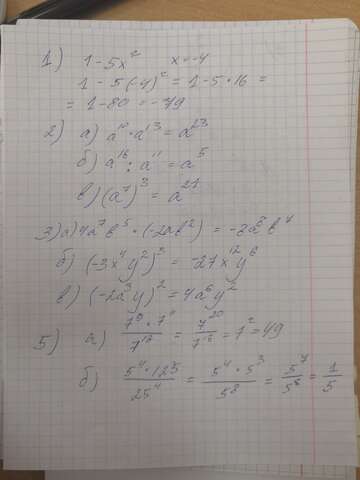 1) 1 - 5x² x = -4
1 - 5(-4)² = 1 - 5 • 16 =
= 1 - 80 = -79
2) а) a¹⁰ • a¹³ = a²³
б) a¹⁶ : a¹¹ = a⁵
в) (a⁷)³ = a²¹
3) а) 4a⁷b⁵ • (-2ab²) = -8a⁸b⁷
б) (-3x⁴y²)³ = -27x¹²y⁶
в) (-2a³y)² = 4a⁶y²
5) а) 7⁹ • 7¹¹ / 7¹⁸ = 7²⁰ / 7¹⁸ = 7² = 49
б) 5⁴ • 125 / 25⁴ = 5⁴ • 5³ / 5⁸ = 5⁷ / 5⁸ = 1 / 5